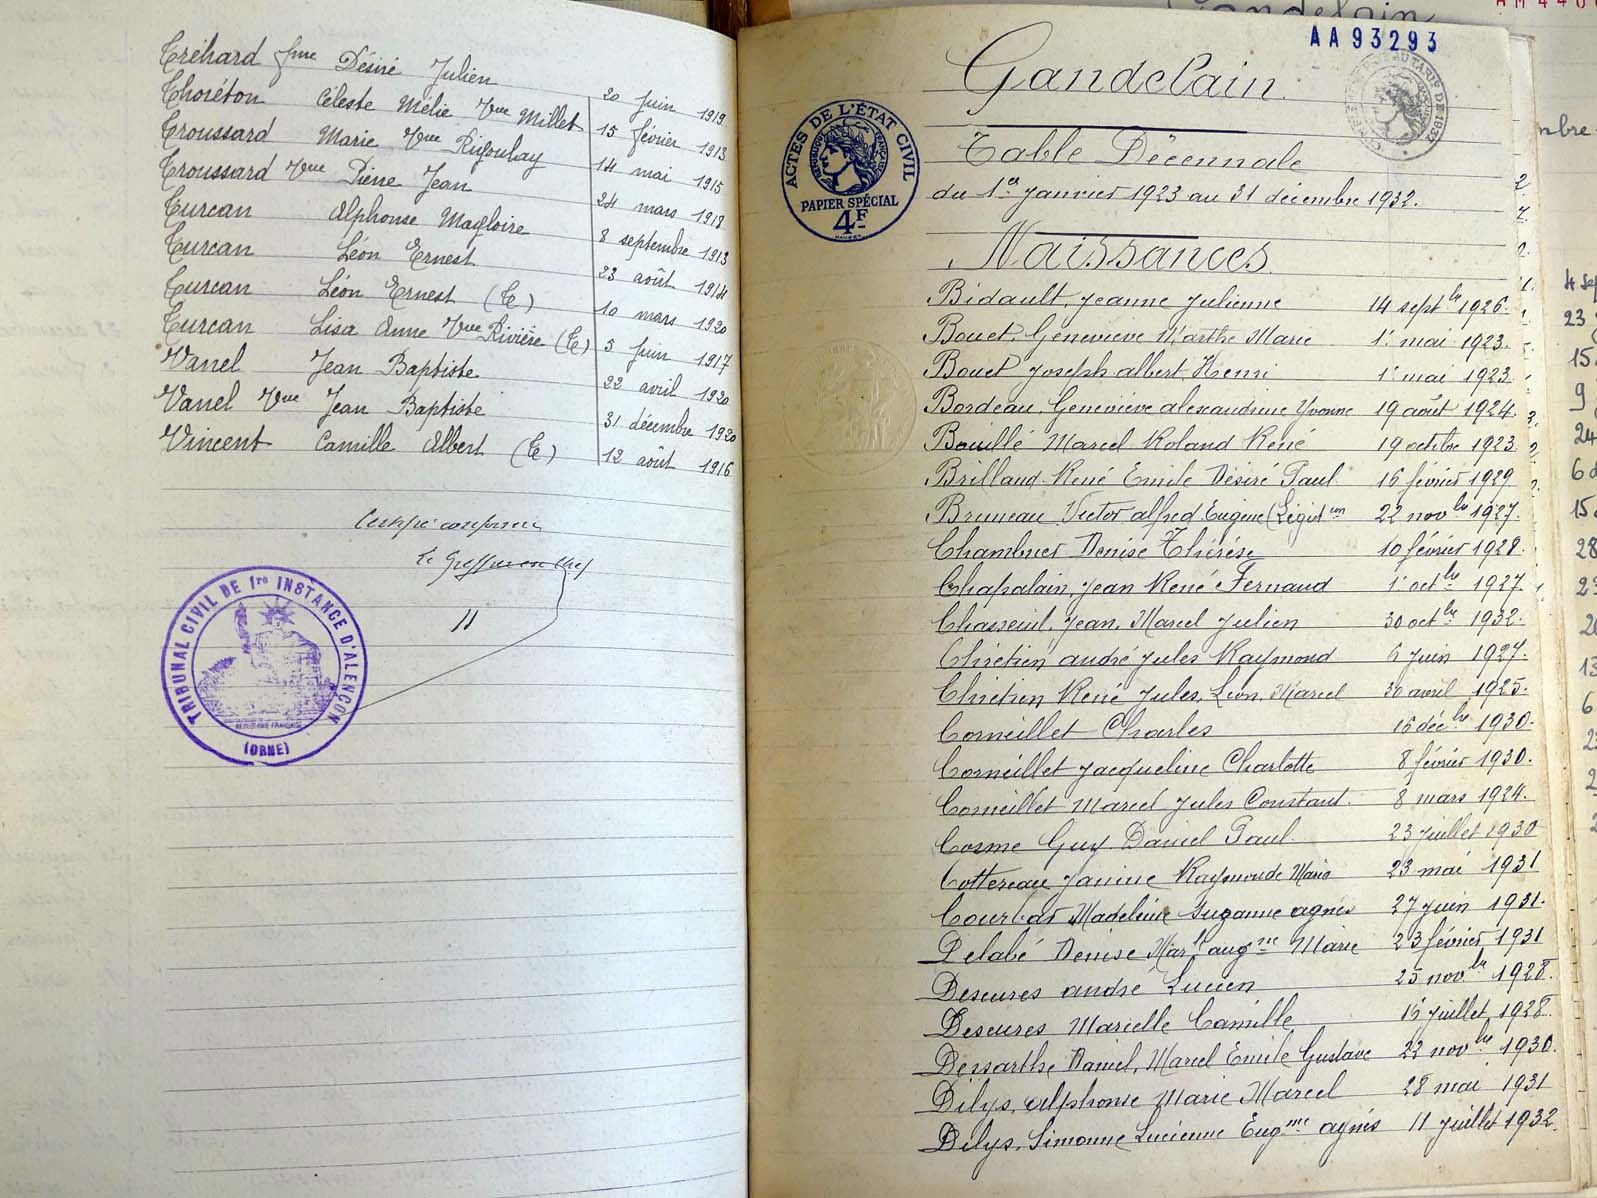 Tréhard fme Désiré Julien 20 Juin 1919
Thoréton Céleste Mélie Vve Millet 15 février 1913
Troussard Marie Vve Rigoulay 14 mai 1915
Troussard Vve Pierre Jean 24 mars 1918
Turcan Alphonse Magloire 8 septembre 1913
Turcan Léon Ernest 23 août 1914
Turcan Léon Ernest (T) 10 mars 1920
Turcan Lisa Anne Vve Rivière (T) 5 Juin 1917
Vanel Jean Baptiste 22 avril 1920
Vanel Vve Jean Baptiste 31 décembre 1920
Vincent Camille Albert (T) 12 août 1916
Certifié conforme
Le Greffier en chef
TRIBUNAL CIVIL DE 1re INSTANCE D'ALENÇON
REPUBLIQUE FRANÇAISE
(ORNE)
AA93293
Gandelain
ACTES DE L'ÉTAT CIVIL
RÉPUBLIQUE FRANÇAISE
PAPIER SPÉCIAL
4F
Table Décennale
du 1er Janvier 1923 au 31 décembre 1932.
Naissances
Bidault, Jeanne Julienne 14 septbre 1926.
Bouet, Geneviève Marthe Marie 1er mai 1923.
Bouet Joseph albert Henri 1er mai 1923
Bordeau, Geneviève alexandrine Yvonne 19 août 1924.
Bouillé Marcel Roland René 19 octobre 1923.
Brilland René Emile Désiré Paul 16 février 1929
Bruneau Victor alfred Eugène (Légiton 22 novbre 1927.
Chambrier Denise Thérèse 10 février 1928.
Chapalain, Jean René Fernand 1er octbre 1927.
Chasseuil, Jean, Marcel Julien 30 octbre 1932.
Chrétien andré Jules Raymond 6 Juin 1927.
Chrétien René Jules, Léon, Marcel 30 avril 1925.
Corneillet Charles 16 décbre 1930.
Corneillet Jacqueline Charlotte 8 février 1930.
Corneillet Marcel Jules Constant. 8 mars 1924.
Cosme Guy Daniel Paul 23 juillet 1930
Cottereau Janine Raymonde Marie 23 mai 1931
Courbar Madeleine Suzanne agnès 27 juin 1931.
Delabé Denise Marte augne Marie 23 février 1931
Descures andré Lucien 25 novbre 1928.
Descures Marcelle Camille 15 juillet 1928.
Dessarthe Daniel, Marcel Emile Gustave 22 novbre 1930.
Dilys, alphonse Marie Marcel 28 mai 1931
Dilys, Simonne Lucienne Eugne agnès 11 juillet 1932.